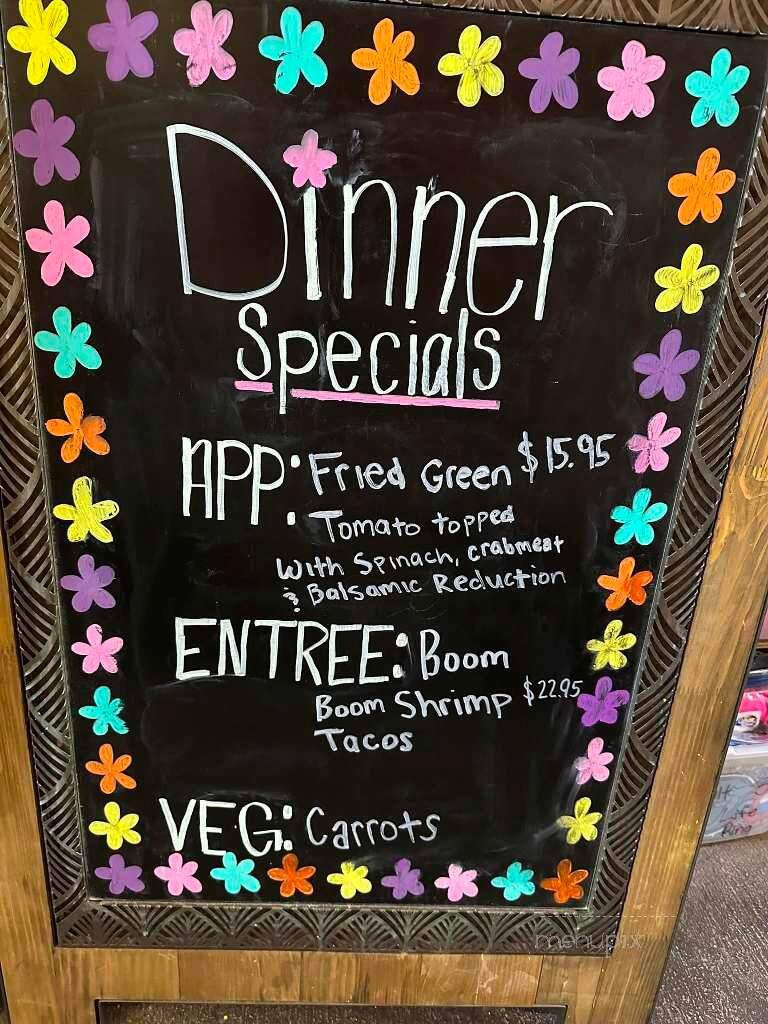 Dinner
Specials
APP: Fried Green $15.95
Tomato topped
With Spinach, crabmeat
& Balsamic Reduction
ENTREE: Boom
Boom Shrimp $22.95
Tacos
VEG: Carrots
menupix